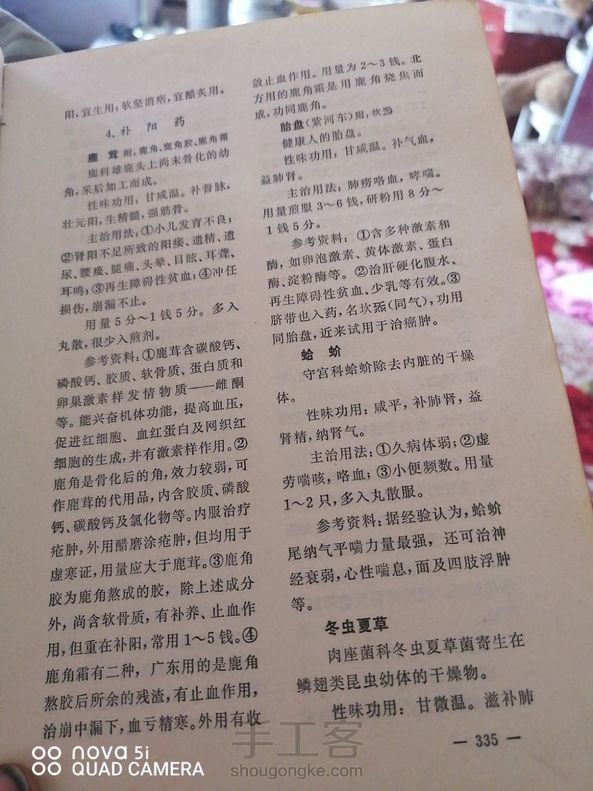 阳，宜生用；软坚消痞，宜醋炙用。
4.补阳药
鹿茸 附：鹿角，鹿角胶，鹿角霜
鹿科雄鹿头上尚未骨化的幼
角，采后加工而成。
性味功用：甘咸温。补督脉，
壮元阳，生精髓，强筋骨。
主治用法：①小儿发育不良；
②肾阳不足所致的阳痿、遗精、遗
尿、腰痠、腿痛、头晕、目眩、耳聋、
耳鸣；③再生障碍性贫血；④冲任
损伤，崩漏不止。
用量5分～1钱5分。多入
丸散，很少入煎剂。
参考资料：①鹿茸含碳酸钙、
磷酸钙、胶质、软骨质、蛋白质和
卵巢激素样发情物质——雌酮
等。能兴奋机体功能，提高血压，
促进红细胞、血红蛋白及网织红
细胞的生成，并有激素样作用。②
鹿角是骨化后的角，效力较弱，可
作鹿茸的代用品，内含胶质、磷酸
钙、碳酸钙及氯化物等。内服治疗
疮肿，外用醋磨涂疮肿，但均用于
虚寒证，用量应大于鹿茸。③鹿角
胶为鹿角熬成的胶，除上述成分
外，尚含软骨质，有补养、止血作
用，但重在补阳，常用1～5钱。④
鹿角霜有二种，广东用的是鹿角
熬胶后所余的残渣，有止血作用，
治崩中漏下，血亏精寒。外用有收
敛止血作用。用量为2～3钱。北
方用的鹿角霜是用鹿角烧焦而
成，功同鹿角。
胎盘（紫河车）附：坎炁
健康人的胎盘。
性味功用：甘咸温。补气血，
益肺肾。
主治用法：肺痨咯血，哮喘。
用量煎服3～6钱，研粉用8分～
1钱5分。
参考资料：①含多种激素和
酶，如卵泡激素、黄体激素、蛋白
酶、淀粉酶等。②治肝硬化腹水、
再生障碍性贫血、少乳等有效。③
脐带也入药，名坎炁（同气），功用
同胎盘，近来试用于治癌肿。
蛤蚧
守宫科蛤蚧除去内脏的干燥
体。
性味功用：咸平，补肺肾，益
肾精，纳肾气。
主治用法：①久病体弱；②虚
劳喘咳，咯血；③小便频数。用量
1～2只，多入丸散服。
参考资料：据经验认为，蛤蚧
尾纳气平喘力量最强，还可治神
经衰弱，心性喘息，面及四肢浮肿
等。
冬虫夏草
肉座菌科冬虫夏草菌寄生在
鳞翅类昆虫幼体的干燥物。
性味功用：甘微温。滋补肺
— 335 —
nova 5i
QUAD CAMERA
手工客
shougongke.com